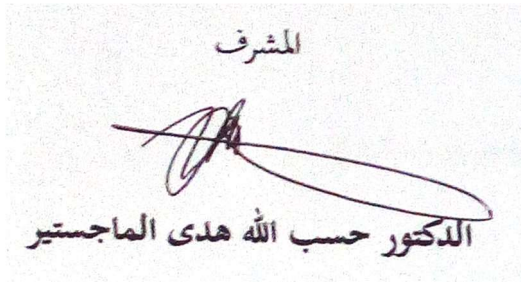 المشرف
الدكتور حسب الله هدى الماجستير